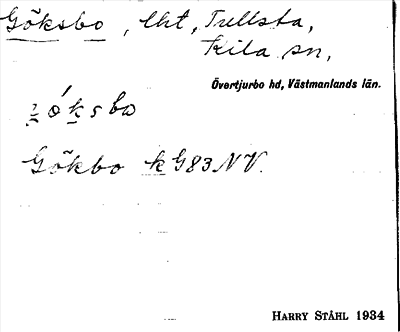 Göksbo, lht, Tullsta,
Kila sn,
Övertjurbo hd, Västmanlands län.
Gökbo k G83NV.
HARRY STÅHL 1934